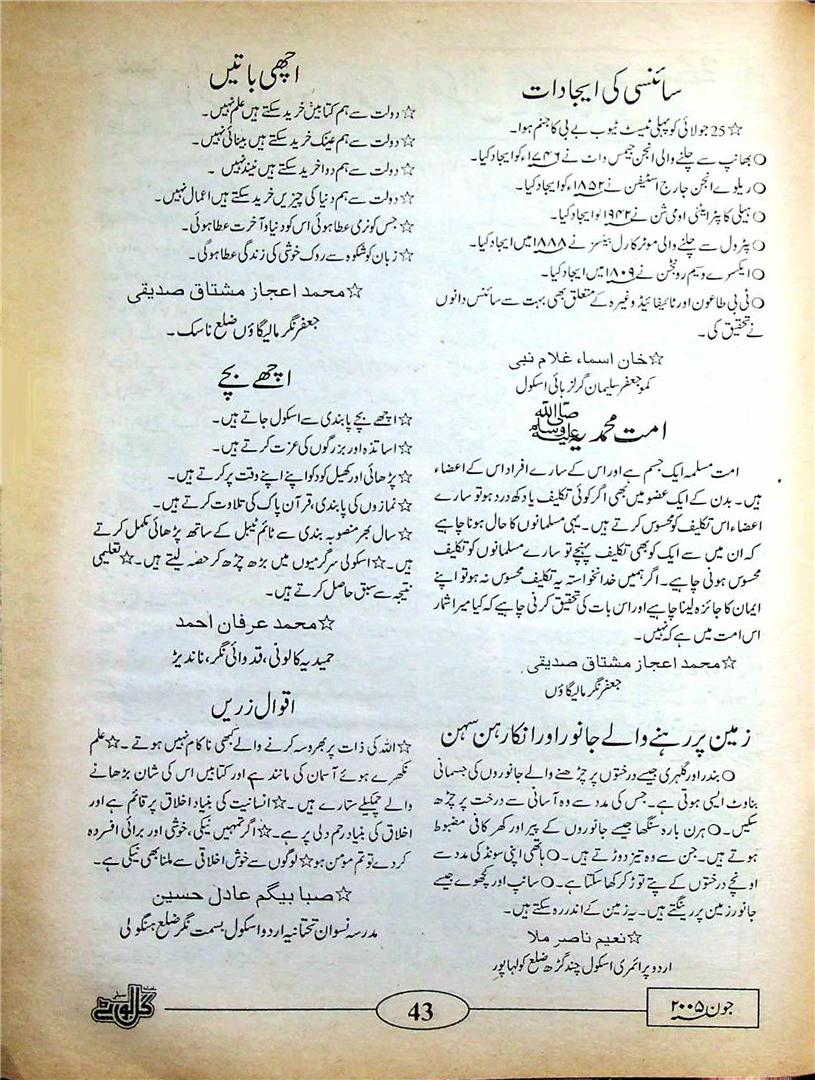 سائنسی کی ایجادات
☆ 25 جولائی کو پہلی ٹیسٹ ٹیوب بے بی کا جنم ہوا۔
○ بھانپ سے چلنے والی انجن جیمس واٹ نے ۱۷۴۶ء کو ایجاد کیا۔
○ ریلوے انجن جارج اسٹیفن نے ۱۸۵۲ء کو ایجاد کیا۔
○ ہیلی کاپٹر ایٹی اومی شن نے ۱۹۴۲ء کو ایجاد کیا۔
○ پٹرول سے چلنے والی موٹر کارل بینسز نے ۱۸۸۸ء میں ایجاد کیا۔
○ ایکسرے وسیم رونجٹن نے ۱۸۰۹ء میں ایجاد کیا۔
○ ٹی بی طاعون اور ٹائیفائیڈ وغیرہ کے متعلق بھی بہت سے سائنس دانوں
نے تحقیق کی۔
☆ خان اسماء غلام نبی
کمو جعفر سلیمان گرلز ہائی اسکول
امت محمدیہ ﷺ
امت مسلمہ ایک جسم ہے اور اس کے سارے افراد اس کے اعضاء
ہیں۔ بدن کے ایک عضو میں بھی اگر کوئی تکلیف یا دکھ درد ہو تو سارے
اعضاء اس تکلیف کو محسوس کرتے ہیں۔ یہی مسلمانوں کا حال ہونا چاہیے
کہ ان میں سے ایک کو بھی تکلیف پہنچے تو سارے مسلمانوں کو تکلیف
محسوس ہونی چاہیے۔ اگر ہمیں خدانخواستہ یہ تکلیف محسوس نہ ہو تو اپنے
ایمان کا جائزہ لینا چاہیے اور اس بات کی تحقیق کرنی چاہیے کہ کیا میرا شمار
اس امت میں ہے کہ نہیں۔
☆ محمد اعجاز مشتاق صدیقی
جعفر نگر مالیگاؤں
زمین پر رہنے والے جانور اور انکا رہن سہن
○ بندر اور گلہری جیسے درختوں پر چڑھنے والے جانوروں کی جسمانی
بناوٹ ایسی ہوتی ہے۔ جس کی مدد سے وہ آسانی سے درخت پر چڑھ
سکیں۔ ○ ہرن بارہ سنگھا جیسے جانوروں کے پیر اور کھر کافی مضبوط
ہوتے ہیں۔ جن سے وہ تیز دوڑتے ہیں۔ ○ ہاتھی اپنی سونڈ کی مدد سے
اونچے درختوں کے پتے توڑ کر کھا سکتا ہے۔ ○ سانپ اور کچھوے جیسے
جانور زمین پر رینگتے ہیں۔ یہ زمین کے اندر رہ سکتے ہیں۔
☆ نعیم ناصر ملا
اردو پرائمری اسکول چند گڑھ ضلع کولہاپور
اچھی باتیں
☆ دولت سے ہم کتابیں خرید سکتے ہیں علم نہیں۔
☆ دولت سے ہم عینک خرید سکتے ہیں بینائی نہیں۔
☆ دولت سے ہم دوا خرید سکتے ہیں نیند نہیں۔
☆ دولت سے ہم دنیا کی چیزیں خرید سکتے ہیں اعمال نہیں۔
☆ جس کو نرمی عطا ہوئی اس کو دنیا و آخرت عطا ہوئی۔
☆ زبان کو شکوہ سے روک خوشی کی زندگی عطا ہوگی۔
☆ محمد اعجاز مشتاق صدیقی
جعفر نگر مالیگاؤں ضلع ناسک۔
اچھے بچے
☆ اچھے بچے پابندی سے اسکول جاتے ہیں۔
☆ اساتذہ اور بزرگوں کی عزت کرتے ہیں۔
☆ پڑھائی اور کھیل کود کو اپنے اپنے وقت پر کرتے ہیں۔
☆ نمازوں کی پابندی، قرآن پاک کی تلاوت کرتے ہیں۔
☆ سال بھر منصوبہ بندی سے ٹائم ٹیبل کے ساتھ پڑھائی مکمل کرتے
ہیں۔ ☆ اسکولی سرگرمیوں میں بڑھ چڑھ کر حصہ لیتے ہیں۔ ☆ تعلیمی
نتیجہ سے سبق حاصل کرتے ہیں۔
☆ محمد عرفان احمد
حمیدیہ کالونی، قدوائی نگر، ناندیڑ
اقوال زریں
☆ اللہ کی ذات پر بھروسہ کرنے والے کبھی ناکام نہیں ہوتے۔ ☆ علم
نکھرے ہوئے آسمان کی مانند ہے اور کتابیں اس کی شان بڑھانے
والے چمکیلے ستارے ہیں۔ ☆ انسانیت کی بنیاد اخلاق پر قائم ہے اور
اخلاق کی بنیاد رحم دلی پر ہے۔ ☆ اگر تمہیں نیکی، خوشی اور برائی افسردہ
کر دے تو تم مومن ہو ☆ لوگوں سے خوش اخلاقی سے ملنا بھی نیکی ہے۔
☆ صبا بیگم عادل حسین
مدرسہ نسوان تحتانیہ اردو اسکول بسمت نگر ضلع ہنگولی
جون ۲۰۰۵ء
43
گل بوٹے